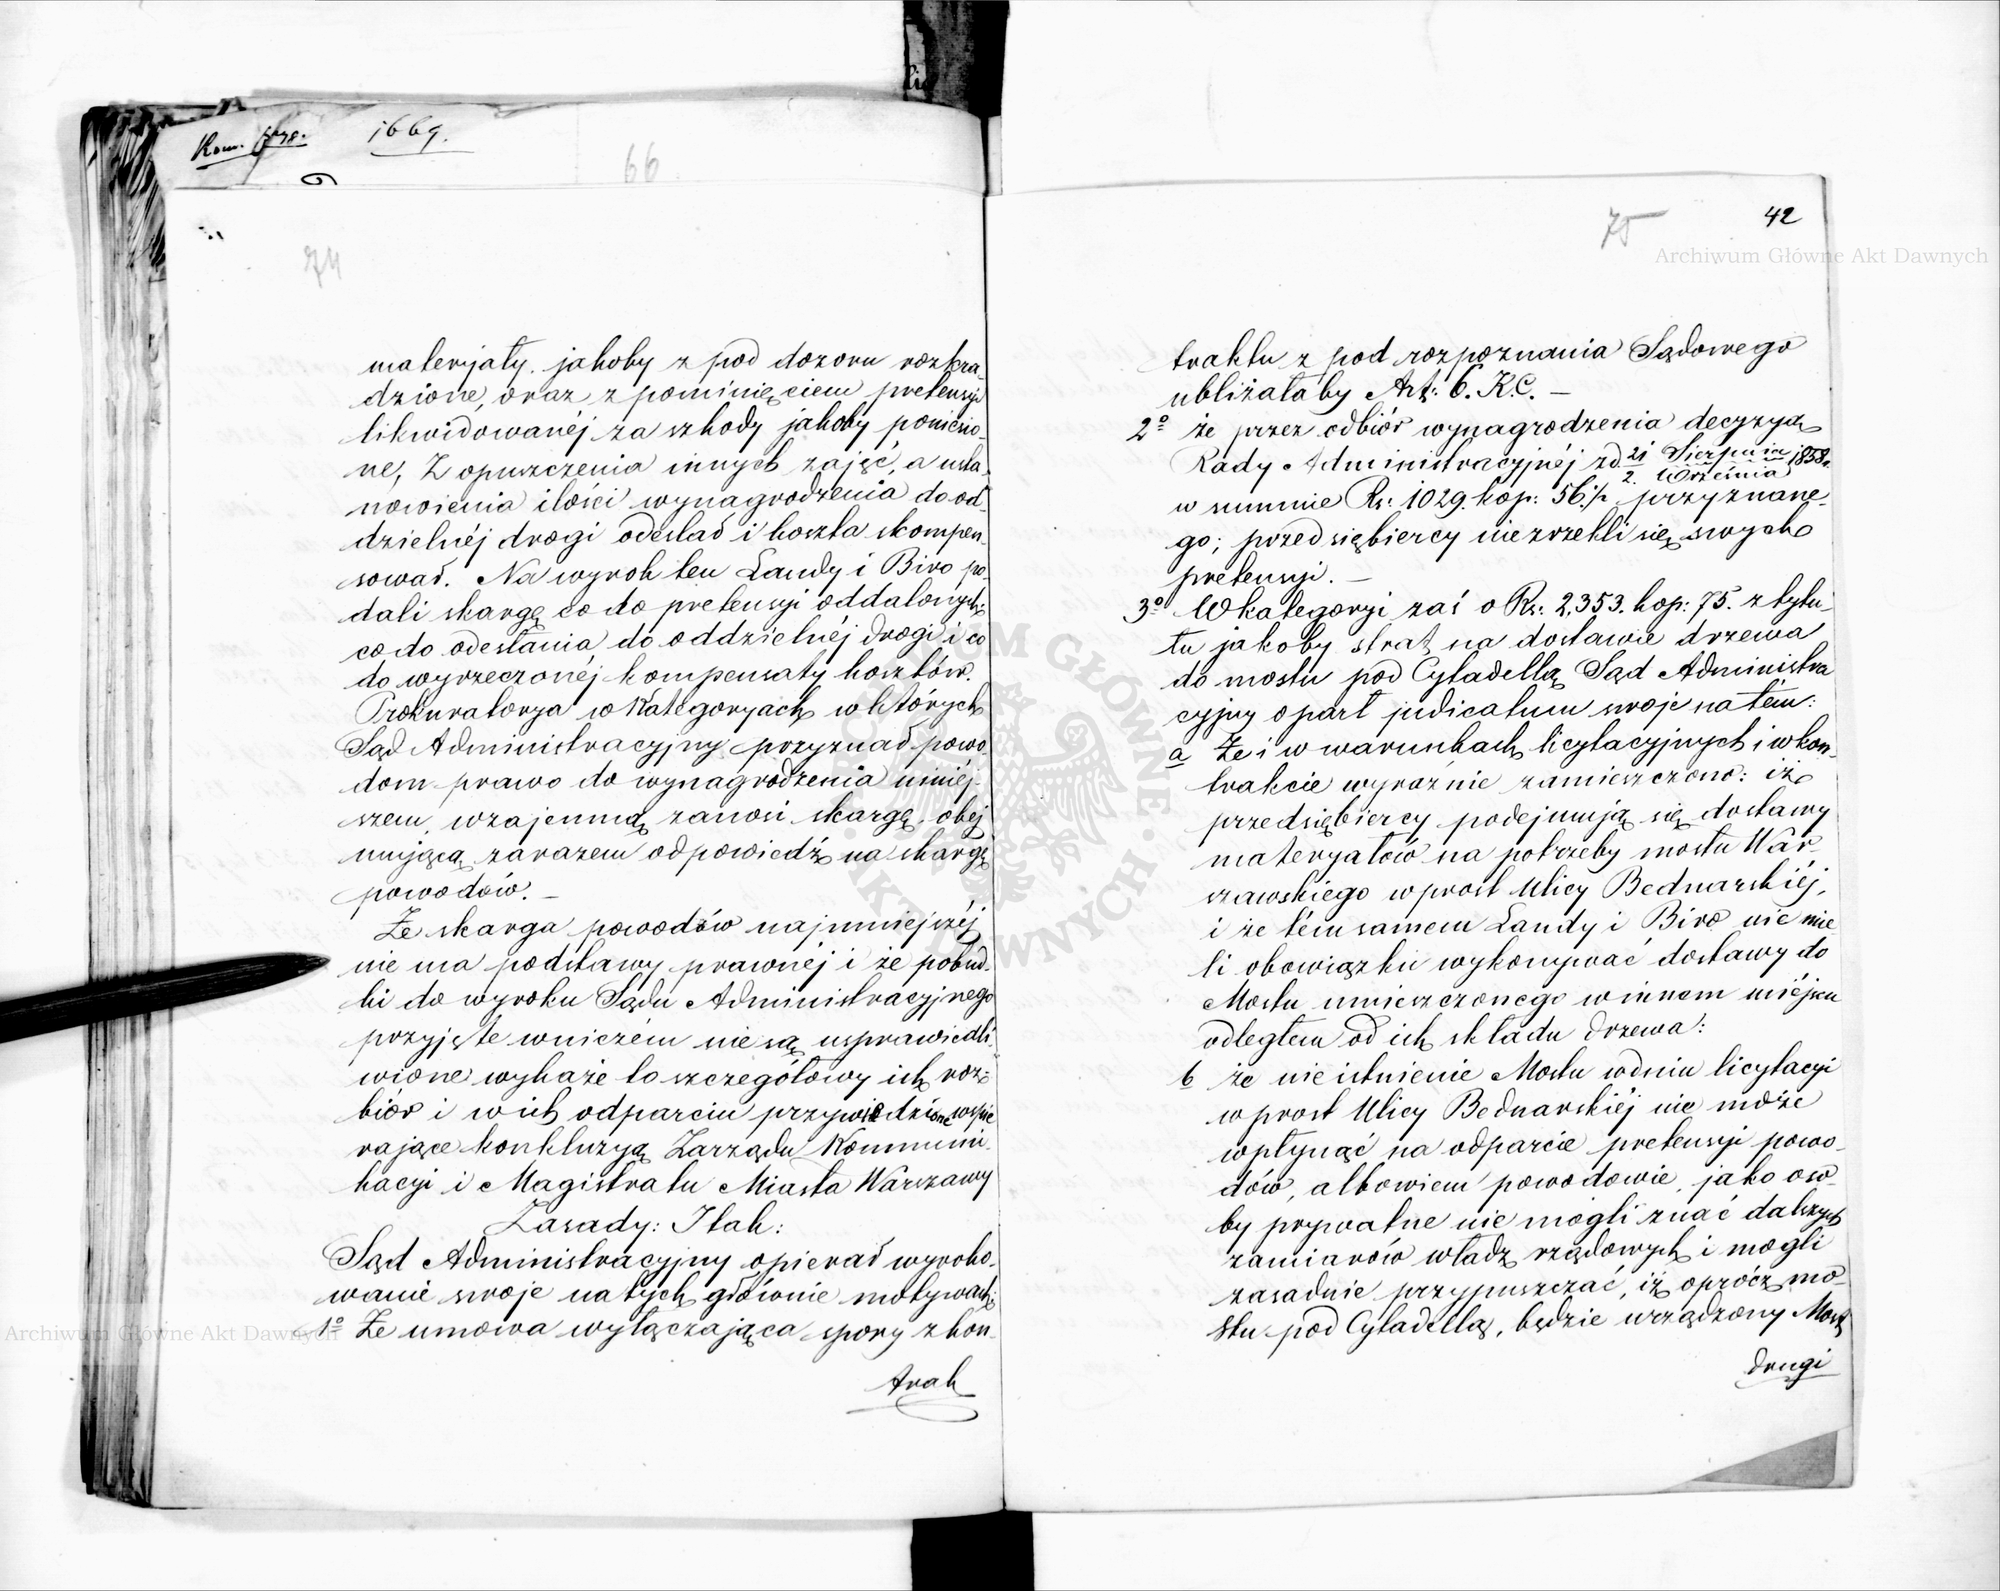 1669.
66
74
materjały jakoby z pod dozoru rozkra-
dzione, oraz z pominięciem pretensyi
likwidowanéj za szkody jakoby poniesio-
ne, z opuszczenia innych zajęć, a usta-
nowienia ilości wynagrodzenia do od-
dzielnéj drogi odesłał i koszta skompen-
sował. Na wyrok ten Landy i Biro po-
dali skargę co do pretensyi oddalonych
co do odesłania do oddzielnéj drogi i co
do wyrzeczonéj kompensaty kosztów.
Prokuratorya w Kategoryach w których
Sąd Administracyjny przyznał powo-
dom prawo do wynagrodzenia niniéj-
szem, wzajemną zanosi skargę, obej
mującą zarazem odpowiedź na skargę
powodów. —
Że skarga powodów najmniejszéj
nie ma podstawy prawnéj i że pobud-
ki do wyroku Sądu Administracyjnego
przyjęte wniczém nie są usprawiedli-
wione wykaże to szczegółowy ich roz-
biór i w ich odparciu przywiedzione wspie
rające konkluzyą Zarządu Kommuni-
kacyi i Magistratu Miasta Warszawy
Zasady: Itak:
Sąd Administracyjny opierał wyroko-
wanie swoje na tych głównie motywach:
1o Że umowa wyłączająca spory z kon-
Archiwum Główne Akt Dawnych
42
75
Archiwum Główne Akt Dawnych
traktu z pod rozpoznania Sądowego
ubliżałaby Art: 6. K.C. —
2o że przez odbiór wynagrodzenia decyzyą
Rady Administracyjnéj zd. 21 Sierpnia / 2. Września 1858 r.
w summie Rs: 1029. kop: 56 1/2 przyznane-
go; przedsiębiercy nie zrzekli się swych
pretensyi. —
3o W kategoryi zaś o Rs: 2,353. kop: 75. z tytu-
łu jakoby strat na dostawie drzewa
do mostu pod Cytadellą Sąd Administra
cyjny oparł judicatum swoje na tém:
a Że i w warunkach licytacyjnych i w kon-
trakcie wyraźnie zamieszczono: iż
przedsiębiercy podejmują się dostawy
materyałów na potrzeby mostu War-
szawskiego wprost Ulicy Bednarskiéj,
i że tém samem Landy i Biro nie mie
li obowiązku wykonywać dostawy do
Mostu umieszczonego w innem miéjscu
odległem od ich składu drzewa:
b że nieistnienie Mostu w dniu licytacyi
wprost Ulicy Bednarskiéj nie może
wpłynąć na odparcie pretensyi powo-
dów, albowiem powodowie, jako oso-
by prywatne nie mogli znać dalszych
zamiarów władz rządowych i mogli
zasadnie przypuszczać, iż oprócz mo-
stu pod Cytadellą, będzie urządzony Most
drugi
ARCHIWUM GŁÓWNE · AKT DAWNYCH ·